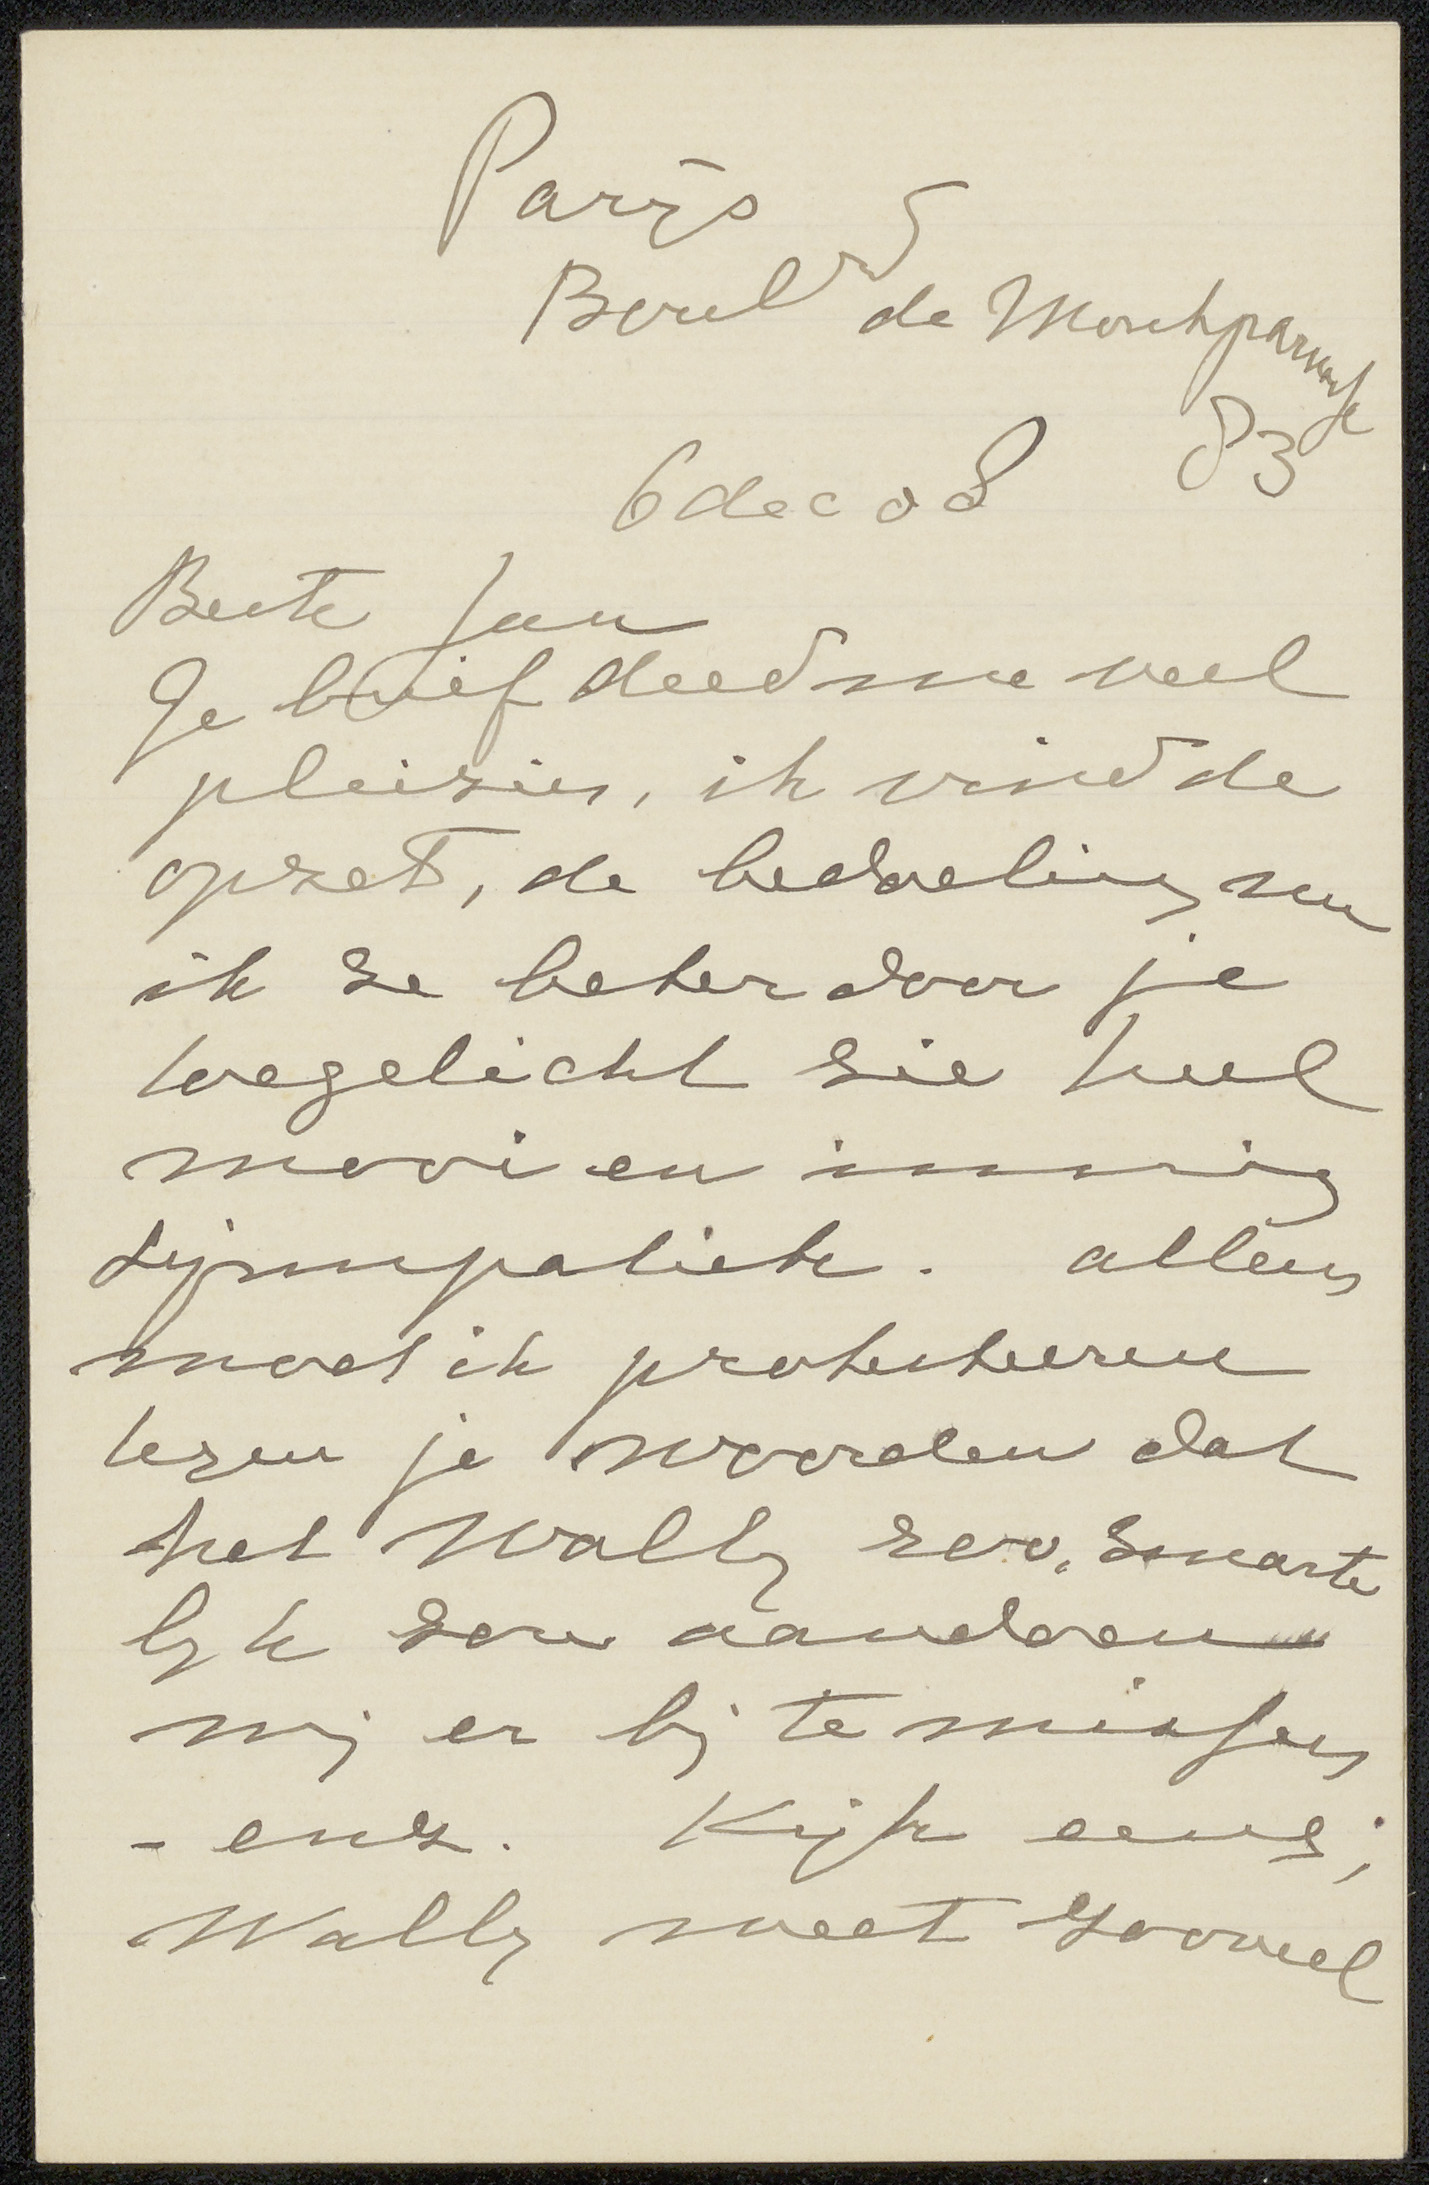 Parijs
Boulvd de Montparnasse
83
6 dec 08
Beste Jan
Je brief deed me veel
pleizier, ik vind de
opzet, de bedoeling nu
ik ze beter door je
toegelicht zie heel
mooi en innig
sympatiek. alleen
moet ik protesteeren
tegen je woorden dat
het Wally zoo. smarte
lyk zou aandoen
mij er bij te missen
- enz. Kijk eens;
Wally weet zooveel